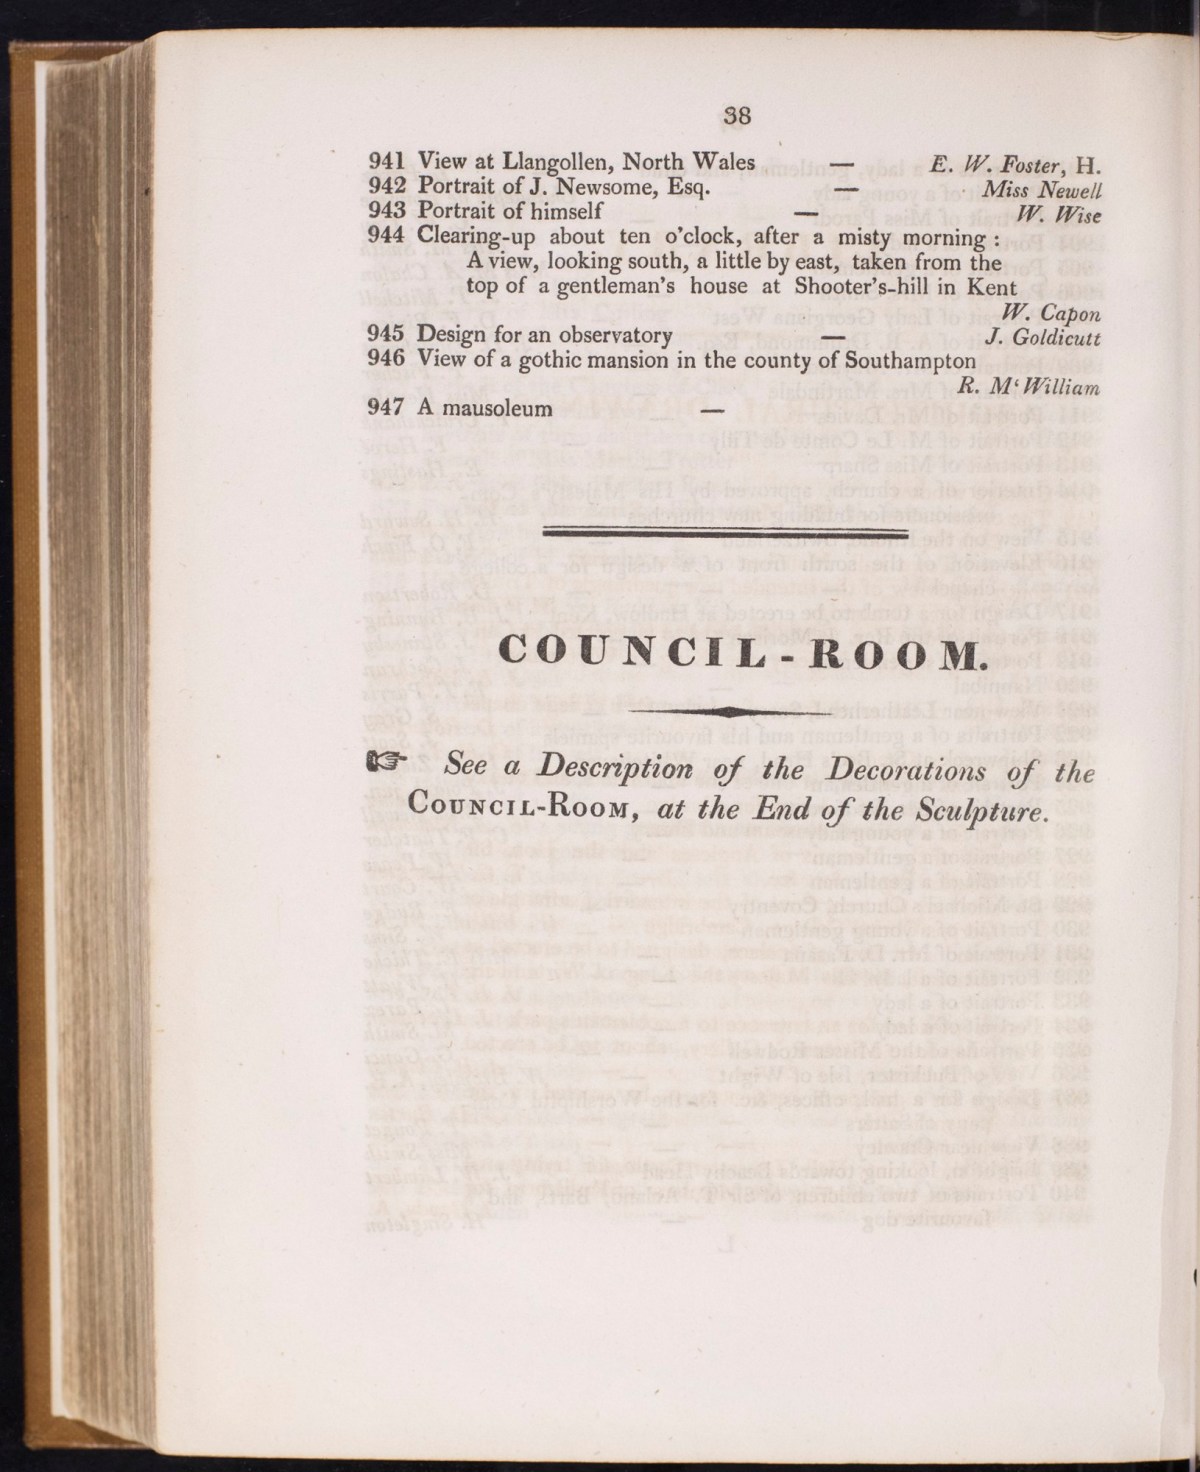 38
941 View at Llangollen, North Wales — E. W. Foster, H.
942 Portrait of J. Newsome, Esq. — Miss Newell
943 Portrait of himself — W. Wise
944 Clearing-up about ten o'clock, after a misty morning :
A view, looking south, a little by east, taken from the
top of a gentleman's house at Shooter's-hill in Kent
W. Capon
945 Design for an observatory — J. Goldicutt
946 View of a gothic mansion in the county of Southampton
R. M‘William
947 A mausoleum —
COUNCIL-ROOM.
☞ See a Description of the Decorations of the
COUNCIL-ROOM, at the End of the Sculpture.